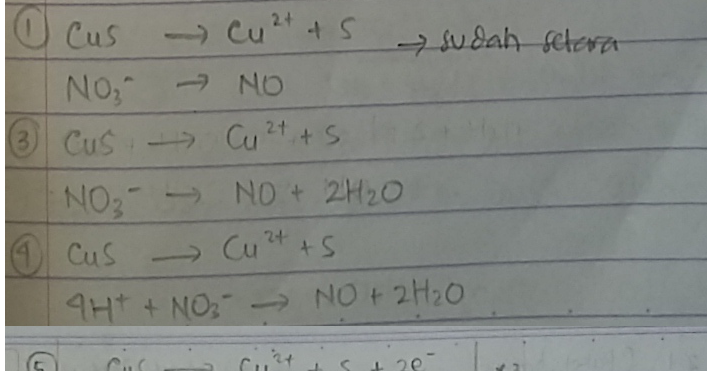 ① CuS → Cu²⁺ + S → sudah setara
NO₃⁻ → NO
③ CuS → Cu²⁺ + S
NO₃⁻ → NO + 2H₂O
④ CuS → Cu²⁺ + S
4H⁺ + NO₃⁻ → NO + 2H₂O
⑤ CuS → Cu²⁺ + S + 2e⁻ |